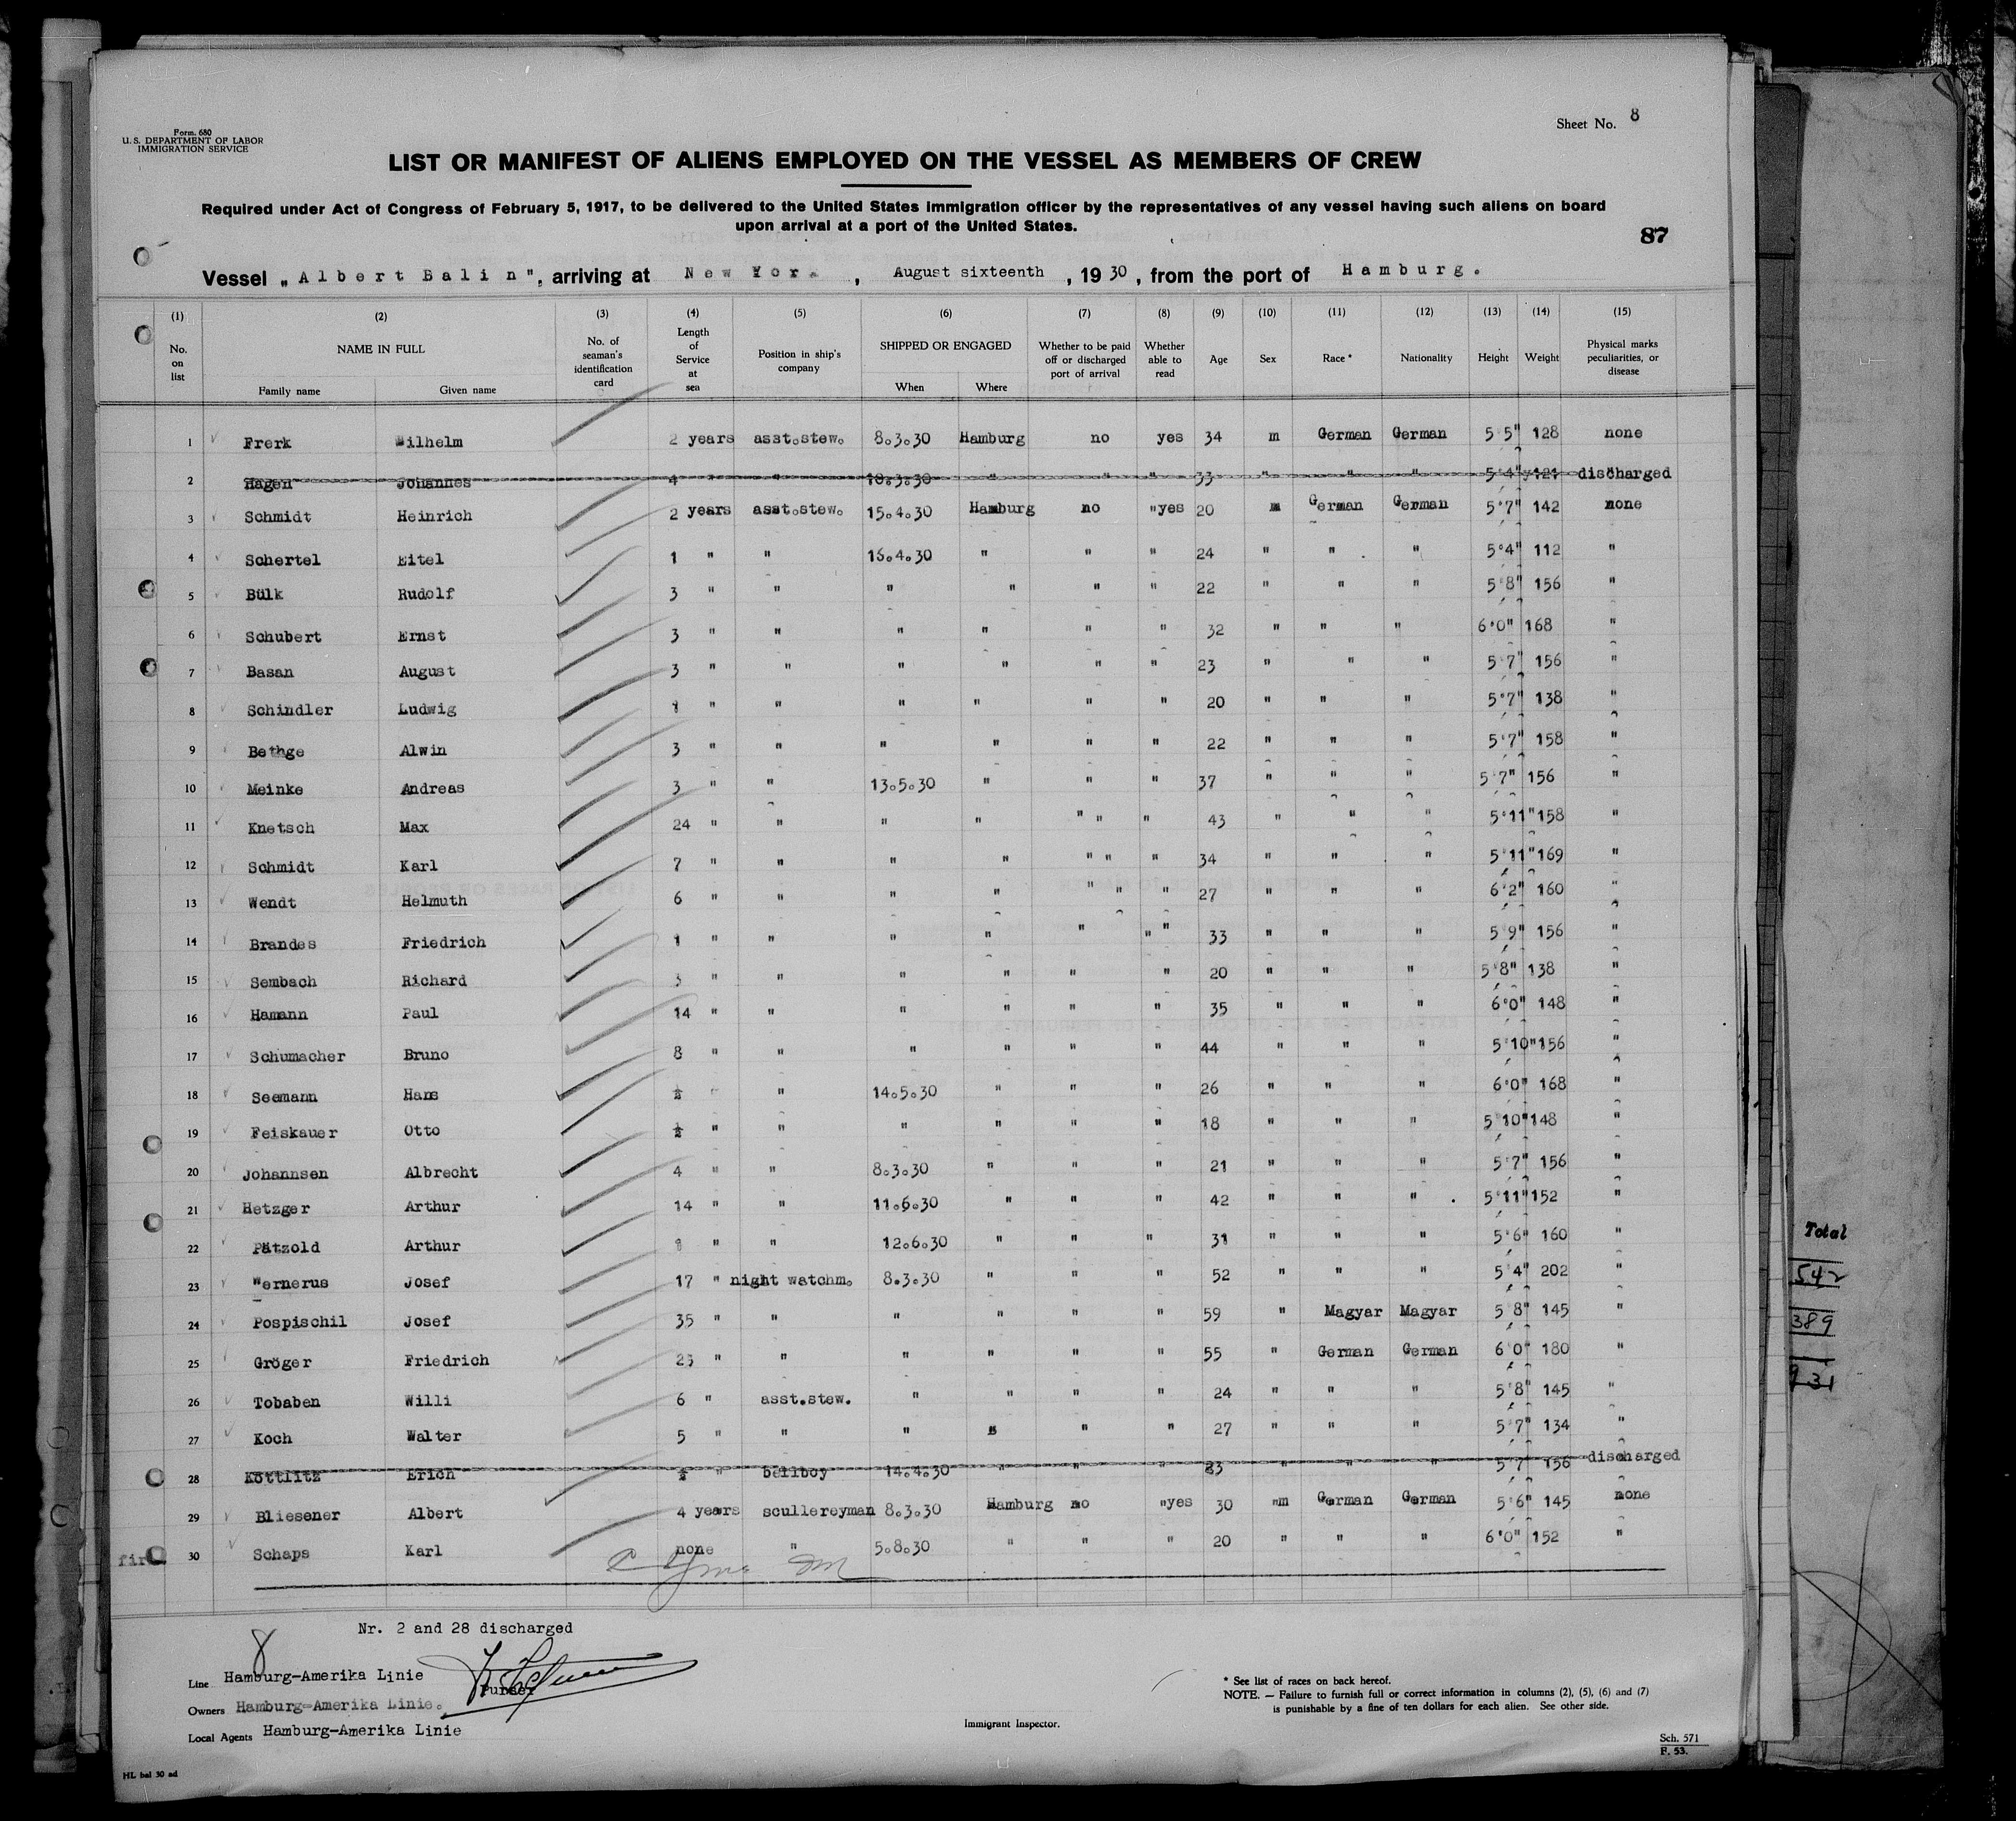 Form. 680
U. S. DEPARTMENT OF LABOR
IMMIGRATION SERVICE
Sheet No. 8
LIST OR MANIFEST OF ALIENS EMPLOYED ON THE VESSEL AS MEMBERS OF CREW
Required under Act of Congress of February 5, 1917, to be delivered to the United States immigration officer by the representatives of any vessel having such aliens on board
upon arrival at a port of the United States.
87
Vessel „Albert Balin", arriving at New York, August sixteenth, 1930, from the port of Hamburg.
(1) (2) (3) (4) (5) (6) (7) (8) (9) (10) (11) (12) (13) (14) (15)
No. on list NAME IN FULL Family name Given name No. of seaman's identification card Length of Service at sea Position in ship's company SHIPPED OR ENGAGED When Where Whether to be paid off or discharged port of arrival Whether able to read Age Sex Race * Nationality Height Weight Physical marks peculiarities, or disease
1 Frerk Wilhelm 2 years asst.stew. 8.3.30 Hamburg no yes 34 m German German 5'5" 128 none
2 Hagen Johannes 4 " " 10.3.30 " " " 33 " " " 5'4" 121 discharged
3 Schmidt Heinrich 2 years asst.stew. 15.4.30 Hamburg no "yes 20 m German German 5'7" 142 none
4 Schertel Eitel 1 " " 16.4.30 " " " 24 " " " 5'4" 112 "
5 Bülk Rudolf 3 " " " " " " 22 " " " 5'8" 156 "
6 Schubert Ernst 3 " " " " " " 32 " " " 6'0" 168 "
7 Basan August 3 " " " " " " 23 " " " 5'7" 156 "
8 Schindler Ludwig " " " " " " 20 " " " 5'7" 138 "
9 Bethge Alwin 3 " " " " " " 22 " " " 5'7" 158 "
10 Meinke Andreas 3 " " 13.5.30 " " " 37 " " " 5'7" 156 "
11 Knetsch Max 24 " " " " " " " 43 " " " 5'11" 158 "
12 Schmidt Karl 7 " " " " " " " 34 " " " 5'11" 169 "
13 Wendt Helmuth 6 " " " " " " " 27 " " " 6'2" 160 "
14 Brandes Friedrich " " " " " " " 33 " " " 5'9" 156 "
15 Sembach Richard 3 " " " " " " 20 " " " 5'8" 138 "
16 Hamann Paul 14 " " " " " " 35 " " " 6'0" 148 "
17 Schumacher Bruno 8 " " " " " " 44 " " " 5'10" 156 "
18 Seemann Hans ½ " " 14.5.30 " " " 26 " " " 6'0" 168 "
19 Feiskauer Otto ½ " " " " " " 18 " " " 5'10" 148 "
20 Johannsen Albrecht 4 " " 8.3.30 " " " 21 " " " 5'7" 156 "
21 Hetzger Arthur 14 " " 11.6.30 " " " 42 " " " 5'11" 152 "
22 Pätzold Arthur " " 12.6.30 " " " 31 " " " 5'6" 160 "
23 Wernerus Josef 17 " night watchm. 8.3.30 " " " 52 " " " 5'4" 202 "
24 Pospischil Josef 35 " " " " " " 59 " Magyar Magyar 5'8" 145 "
25 Gröger Friedrich 25 " " " " " " 55 " German German 6'0" 180 "
26 Tobaben Willi 6 " asst.stew. " " " " 24 " " " 5'8" 145 "
27 Koch Walter 5 " " " " " " 27 " " " 5'7" 134 "
28 Köttlitz Erich ½ " bellboy 14.4.30 " " " 23 " " " 5'7" 156 discharged
29 Bliesener Albert 4 years scullereyman 8.3.30 Hamburg no "yes 30 "m German German 5'6" 145 none
30 Schaps Karl none " 5.8.30 " " " 20 " " " 6'0" 152 "
Nr. 2 and 28 discharged
8
Line Hamburg-Amerika Linie
Purser
Owners Hamburg-Amerika Linie.
Local Agents Hamburg-Amerika Linie
Immigrant Inspector.
* See list of races on back hereof.
NOTE. — Failure to furnish full or correct information in columns (2), (5), (6) and (7)
is punishable by a fine of ten dollars for each alien. See other side.
Sch. 571
F. 53.
HL bal 30 ad
Total
542
389
931